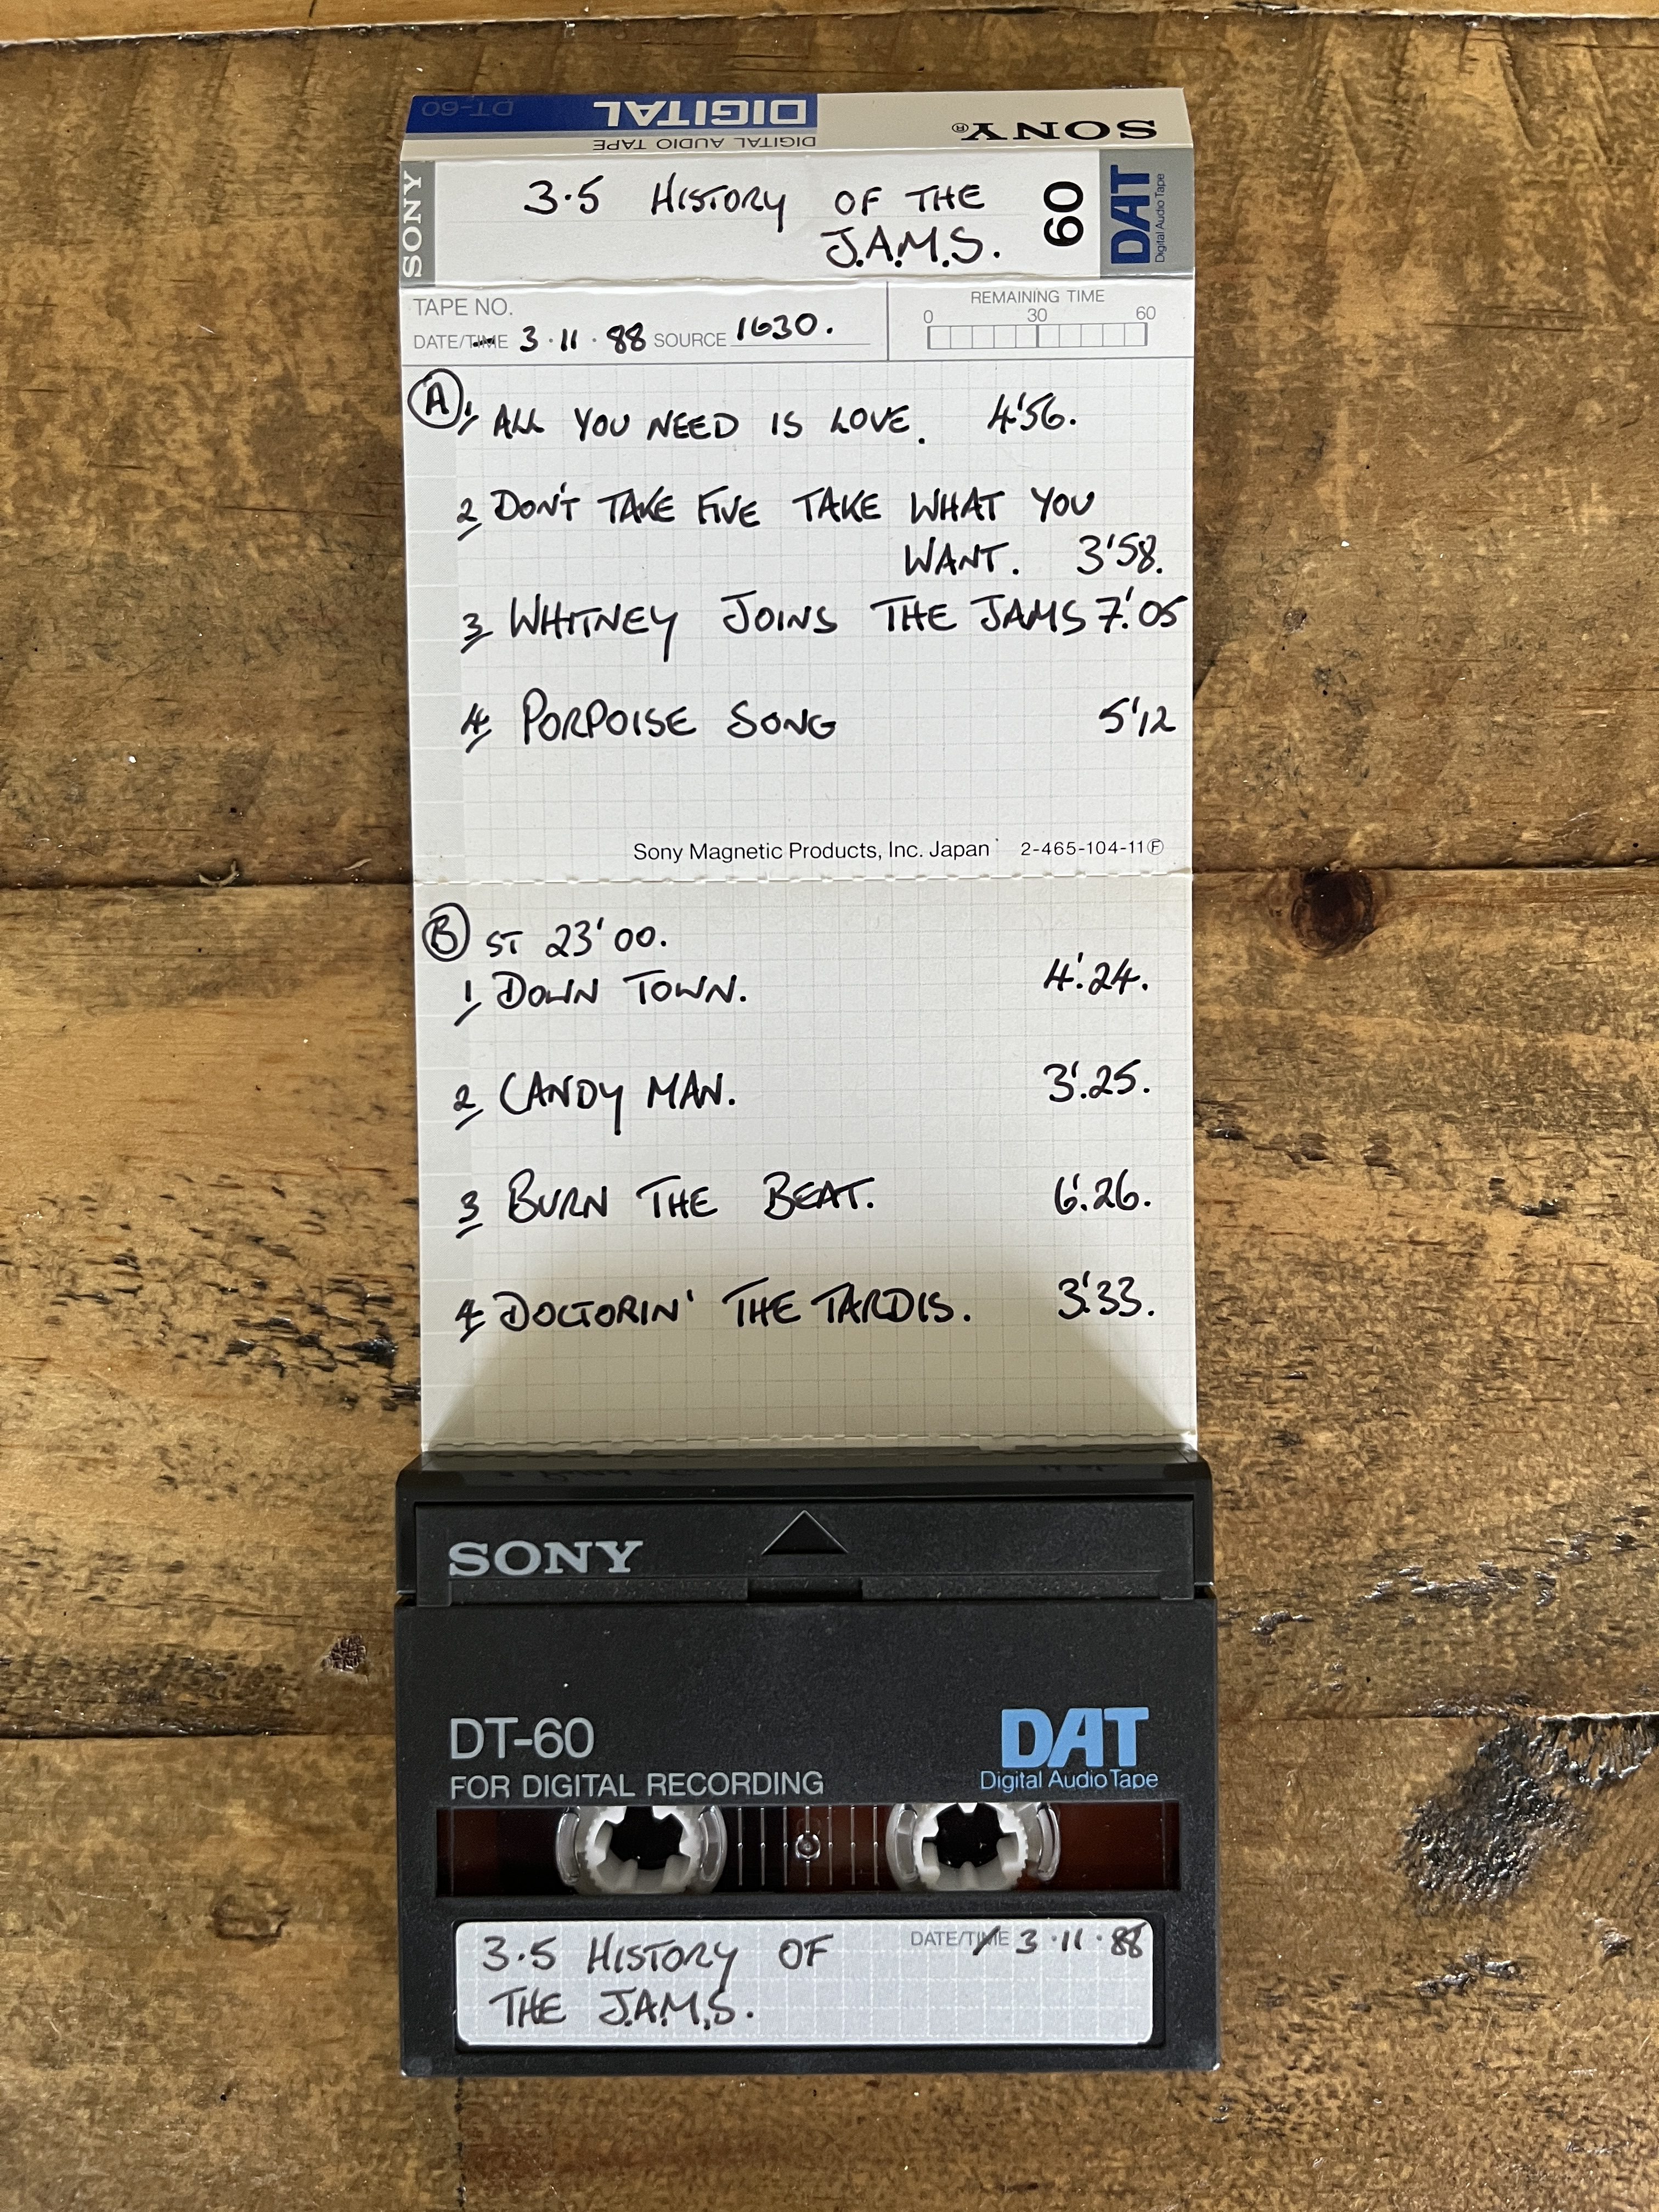 SONY®
DIGITAL
DT-60
DIGITAL AUDIO TAPE
SONY
3.5 HISTORY OF THE
J.A.M.S.
60
DAT
Digital Audio Tape
TAPE NO.
DATE/TIME 3·11·88 SOURCE 1630.
REMAINING TIME
0 30 60
A
1 ALL YOU NEED IS LOVE. 4'56.
2 DON'T TAKE FIVE TAKE WHAT YOU
WANT. 3'58.
3 WHITNEY JOINS THE JAMS 7'.05
4 PORPOISE SONG 5'12
Sony Magnetic Products, Inc. Japan 2-465-104-11Ⓕ
B ST 23'00.
1 DOWN TOWN. 4'.24.
2 CANDY MAN. 3'.25.
3 BURN THE BEAT. 6'.26.
4 DOCTORIN' THE TARDIS. 3'.33.
SONY
DT-60
FOR DIGITAL RECORDING
DAT
Digital Audio Tape
DATE/TIME 3·11·88
3.5 HISTORY OF
THE J.A.M.S.